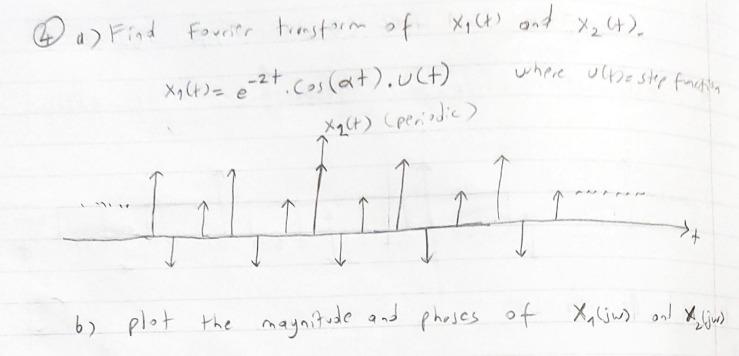 ④ a) Find Fourier transform of x₁(t) and x₂(t).
x₁(t) = e^-2t . Cos(αt) . u(t) where u(t) = step function
x₂(t) (periodic)
......
.......
t
b) plot the magnitude and phases of X₁(jω) and X₂(jω)